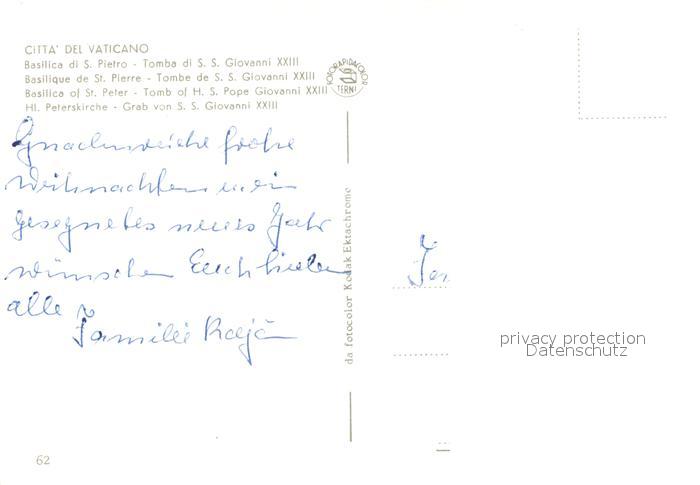 CITTA' DEL VATICANO
Basilica di S. Pietro - Tomba di S. S. Giovanni XXIII
Basilique de St. Pierre - Tombe de S. S. Giovanni XXIII
Basilica of St. Peter - Tomb of H. S. Pope Giovanni XXIII
Hl. Peterskirche - Grab von S. S. Giovanni XXIII
FOTORAPIDACOLOR
TERNI
Gnadenreiche frohe
Weihnachten u. ein
gesegnetes neues Jahr
wünschen Euch lieben
alle
Familie
da fotocolor Kodak Ektachrome
privacy protection
Datenschutz
62